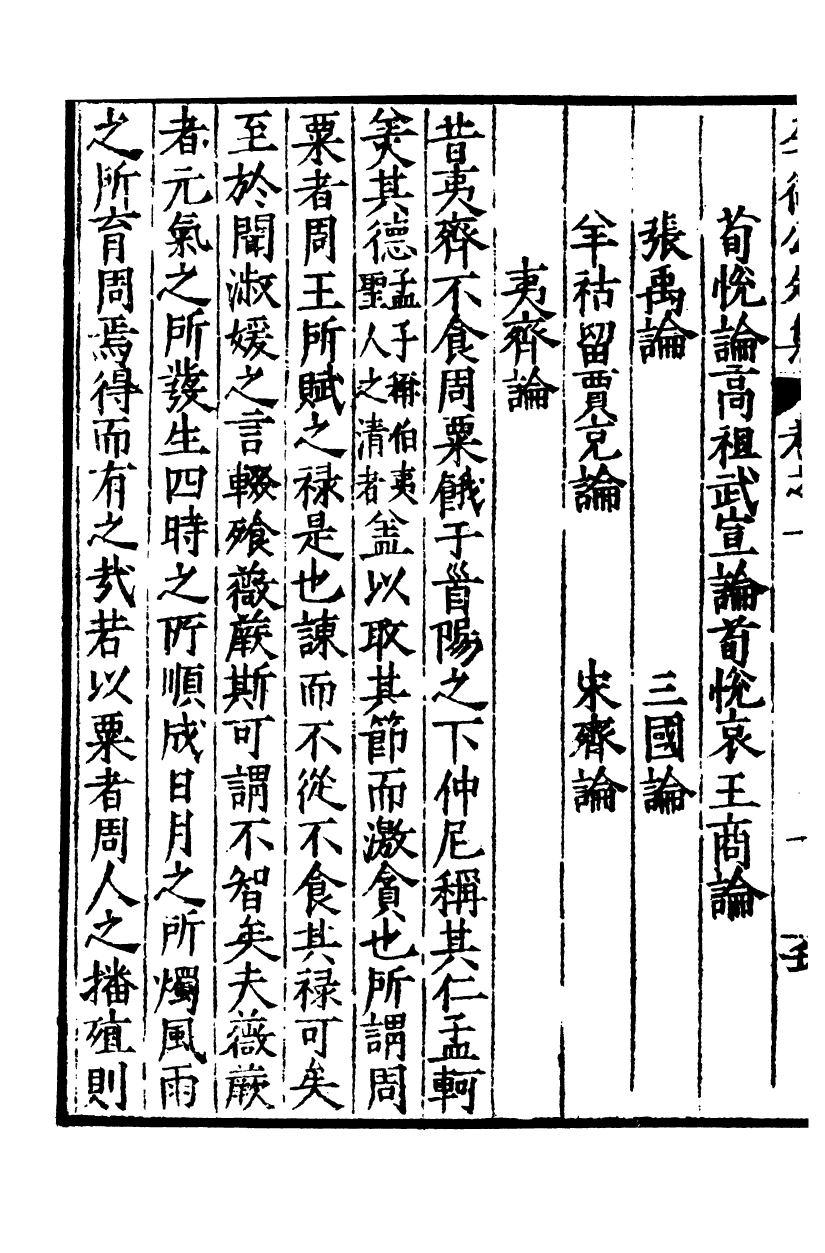 荀恱論高祖武宣論荀恱哀王商論
張禹論 三國論
羊祜留賈充論 宋齊論
夷齊論
昔夷齊不食周粟餓于首陽之下仲尼稱其仁孟軻
美其德孟子稱伯夷聖人之清者盖以取其節而激貪也所謂周
粟者周王所賦之禄是也諌而不從不食其禄可矣
至於聞淑媛之言輟飱薇蕨斯可謂不智矣夫薇蕨
者元氣之所發生四時之所順成日月之所燭風雨
之所育周焉得而有之㢤若以粟者周人之播殖則